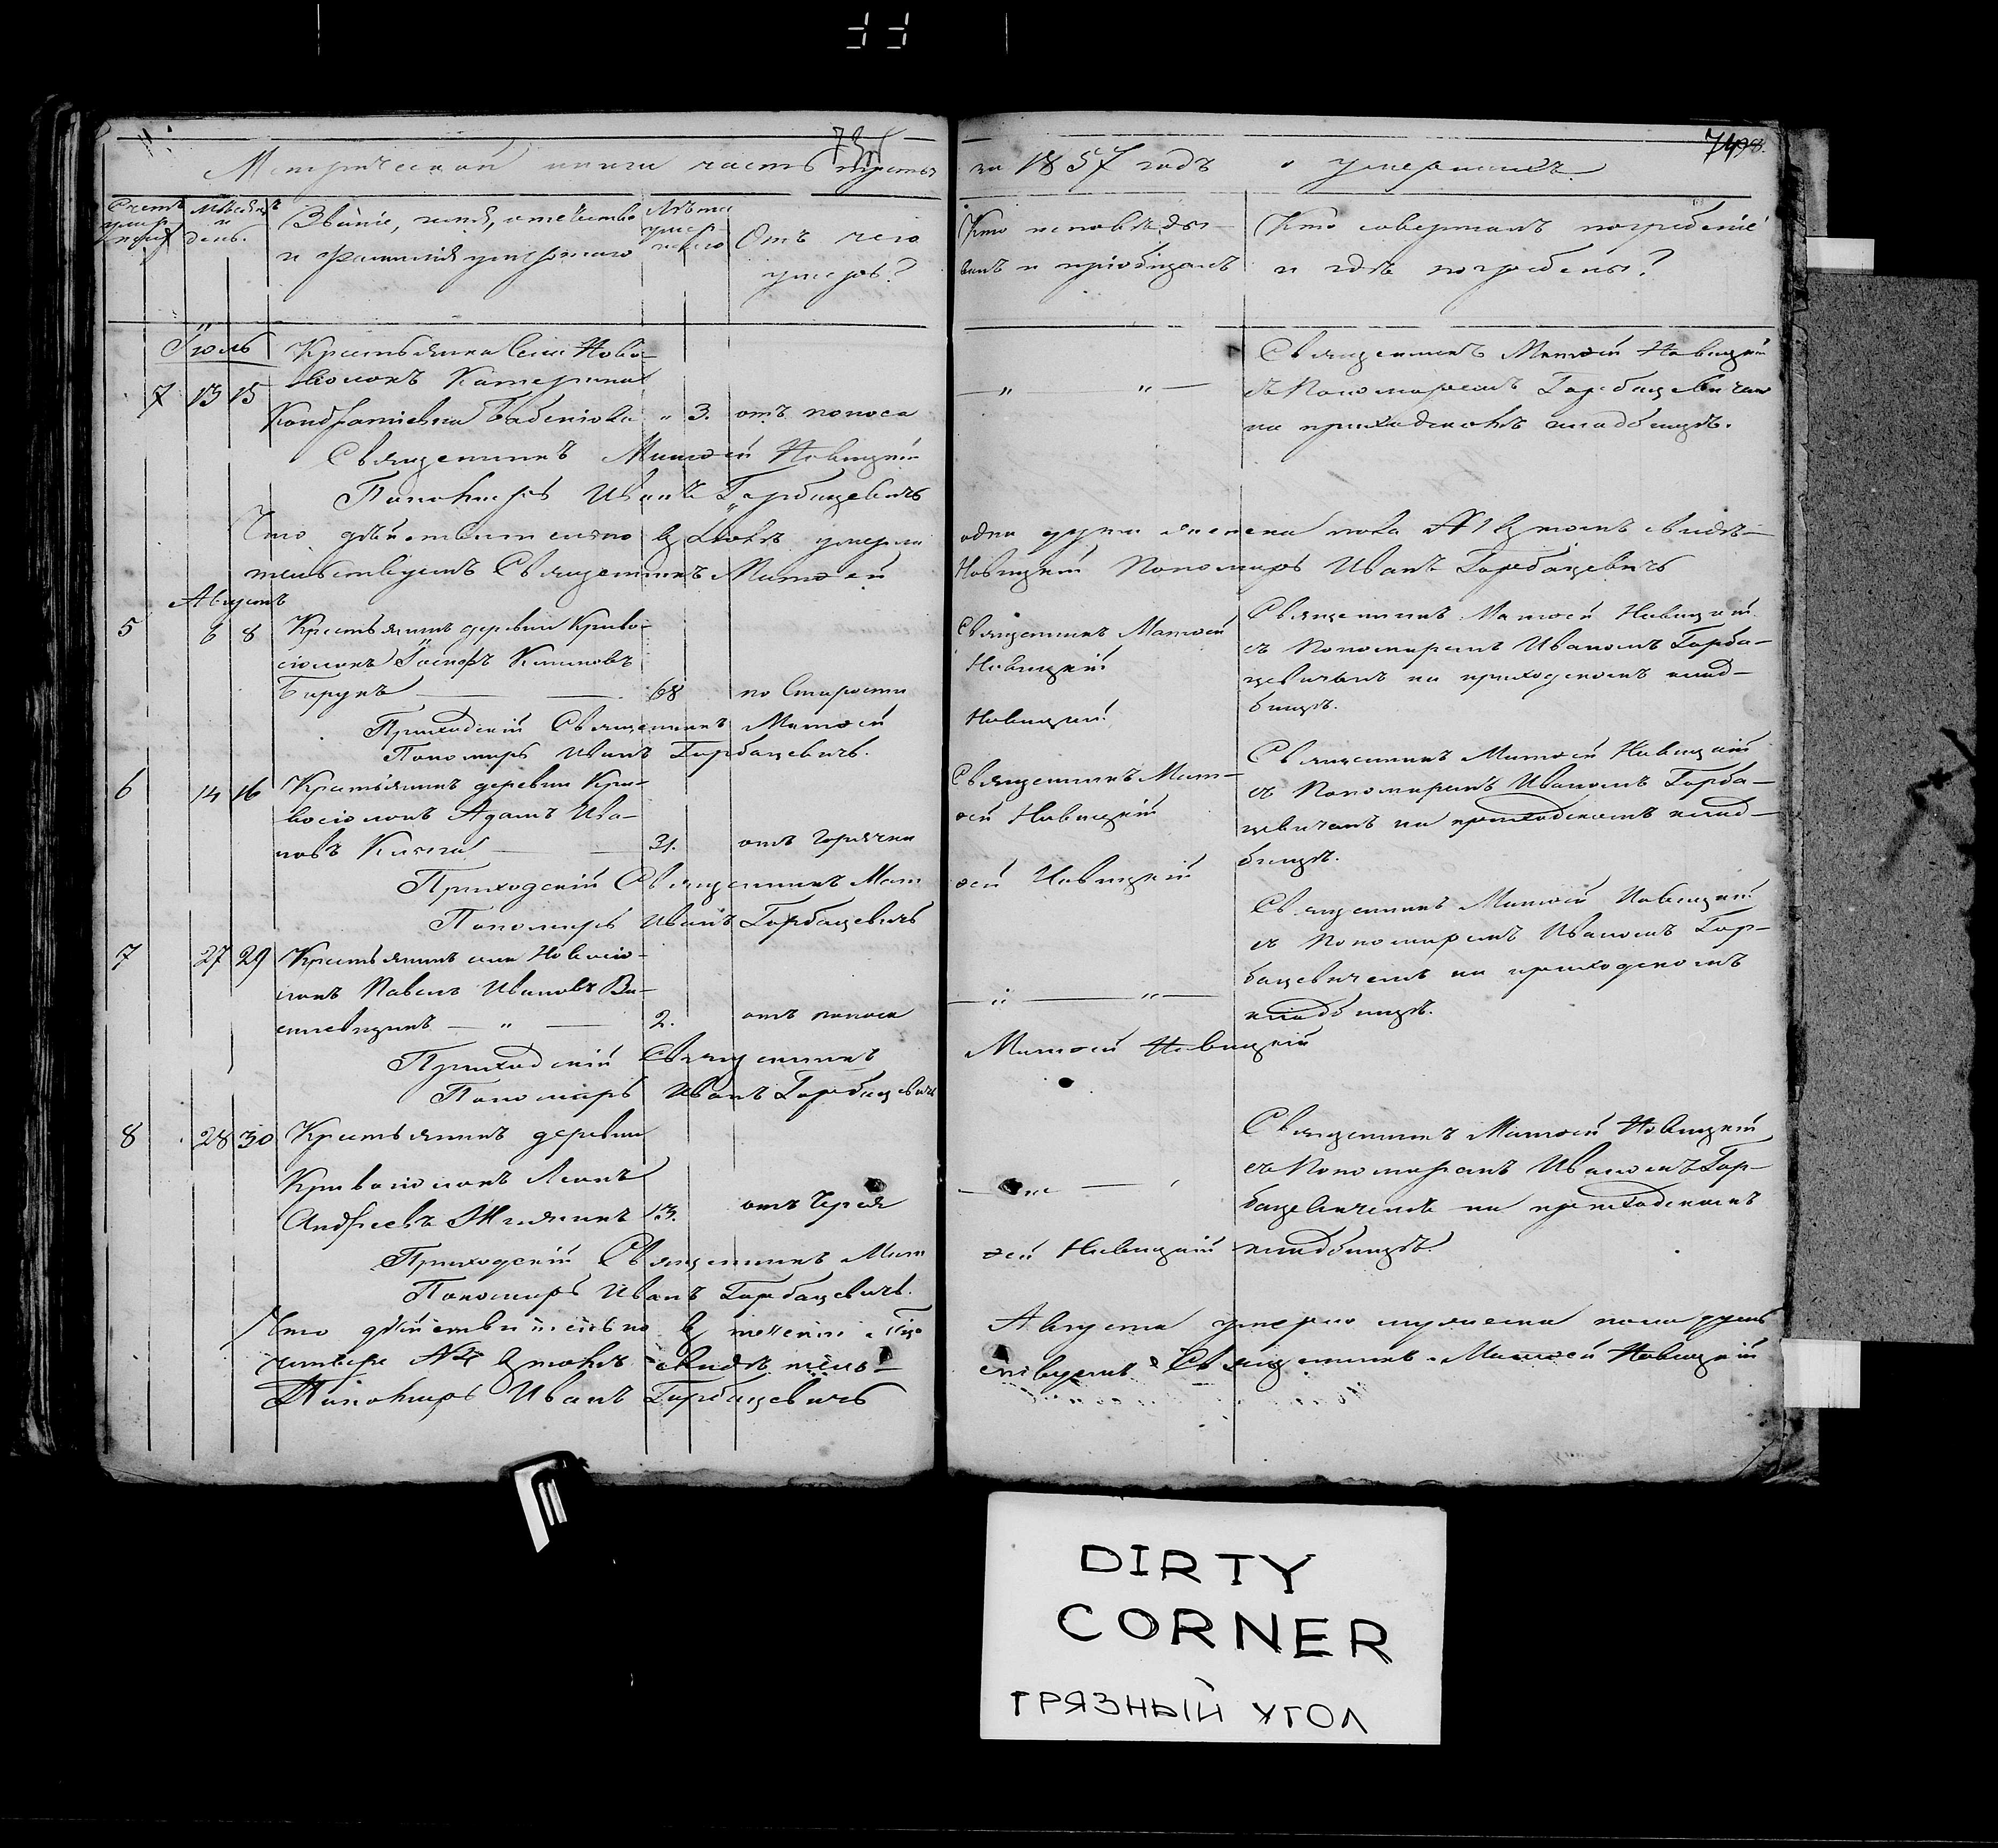 73 об
Метрической книги часть третья
за 1857 годъ о умершихъ
74
Счетъ умер-шихъ
Мѣсяцъ и день.
Званіе, имя, отчество
и фамилія умершаго
Лѣта умер-шаго
Отъ чего
умеръ?
Кто исповѣды-
валъ и пріобщалъ
Кто совершалъ погребеніе
и гдѣ погребены?
Іюль
Крестьянка села Ново-
7 13 15 Катерина
Кондратіевна 3. отъ поноса
Священникъ Матѳей Новицкій
съ Пономаремъ Горбацевичемъ
на приходскомъ кладбищѣ.
Священникъ Матѳей Новицкій
Пономарь Иванъ Горбацевичъ
Что дѣйствительно въ Іюлѣ умерла
одна душа женска пола №1 въ томъ свидѣ-
тельствуемъ Священникъ Матѳей
Новицкій Пономарь Иванъ Горбацевичъ
Августъ
5 6 8 Крестьянинъ деревни Криво-
сіолокъ Іосифъ
68 по Старости
Священникъ Матѳей
Новицкій
Священникъ Матѳей Новицкій
съ Пономаремъ Иваномъ Горба-
цевичемъ на приходскомъ клад-
бищѣ.
Приходскій Священникъ Матѳей
Новицкій
Пономарь Иванъ Горбацевичъ.
6 14 16 Крестьянинъ деревни Кри-
восіолокъ Адамъ Ива-
новъ 31. отъ горячки
Священникъ Мат-
ѳей Новицкій
Священникъ Матѳей Новицкій
съ Пономаремъ Иваномъ Горба-
цевичемъ на приходскомъ клад-
бищѣ.
Приходскій Священникъ Мат
ѳей Новицкій
Пономарь Иванъ Горбацевичъ
7 27 29 Крестьянинъ села Новосіо-
локъ Павелъ Ивановъ Ва-
2. отъ поноса
Священникъ Матѳей Новицкій
съ Пономаремъ Иваномъ Гор-
бацевичемъ на приходскомъ
кладбищѣ.
Приходскій Священникъ
Матѳей Новицкій
Пономарь Иванъ Горбацевичъ
8 28 30 Крестьянинъ деревни
Кривосіолокъ
Андреевъ 13. отъ
Священникъ Матѳей Новицкій
съ Пономаремъ Иваномъ Гор-
бацевичемъ на приходскомъ
кладбищѣ.
Приходскій Священникъ Мат
ѳей Новицкій
Пономарь Иванъ Горбацевичъ.
Что дѣйствительно въ теченіи
Августа умерло мужеска пола душъ
четыре №4 въ томъ свидѣтель-
ствуемъ Священникъ Матѳей Новицкій
Пономарь Иванъ Горбацевичъ
DIRTY
CORNER
ГРЯЗНЫЙ УГОЛ